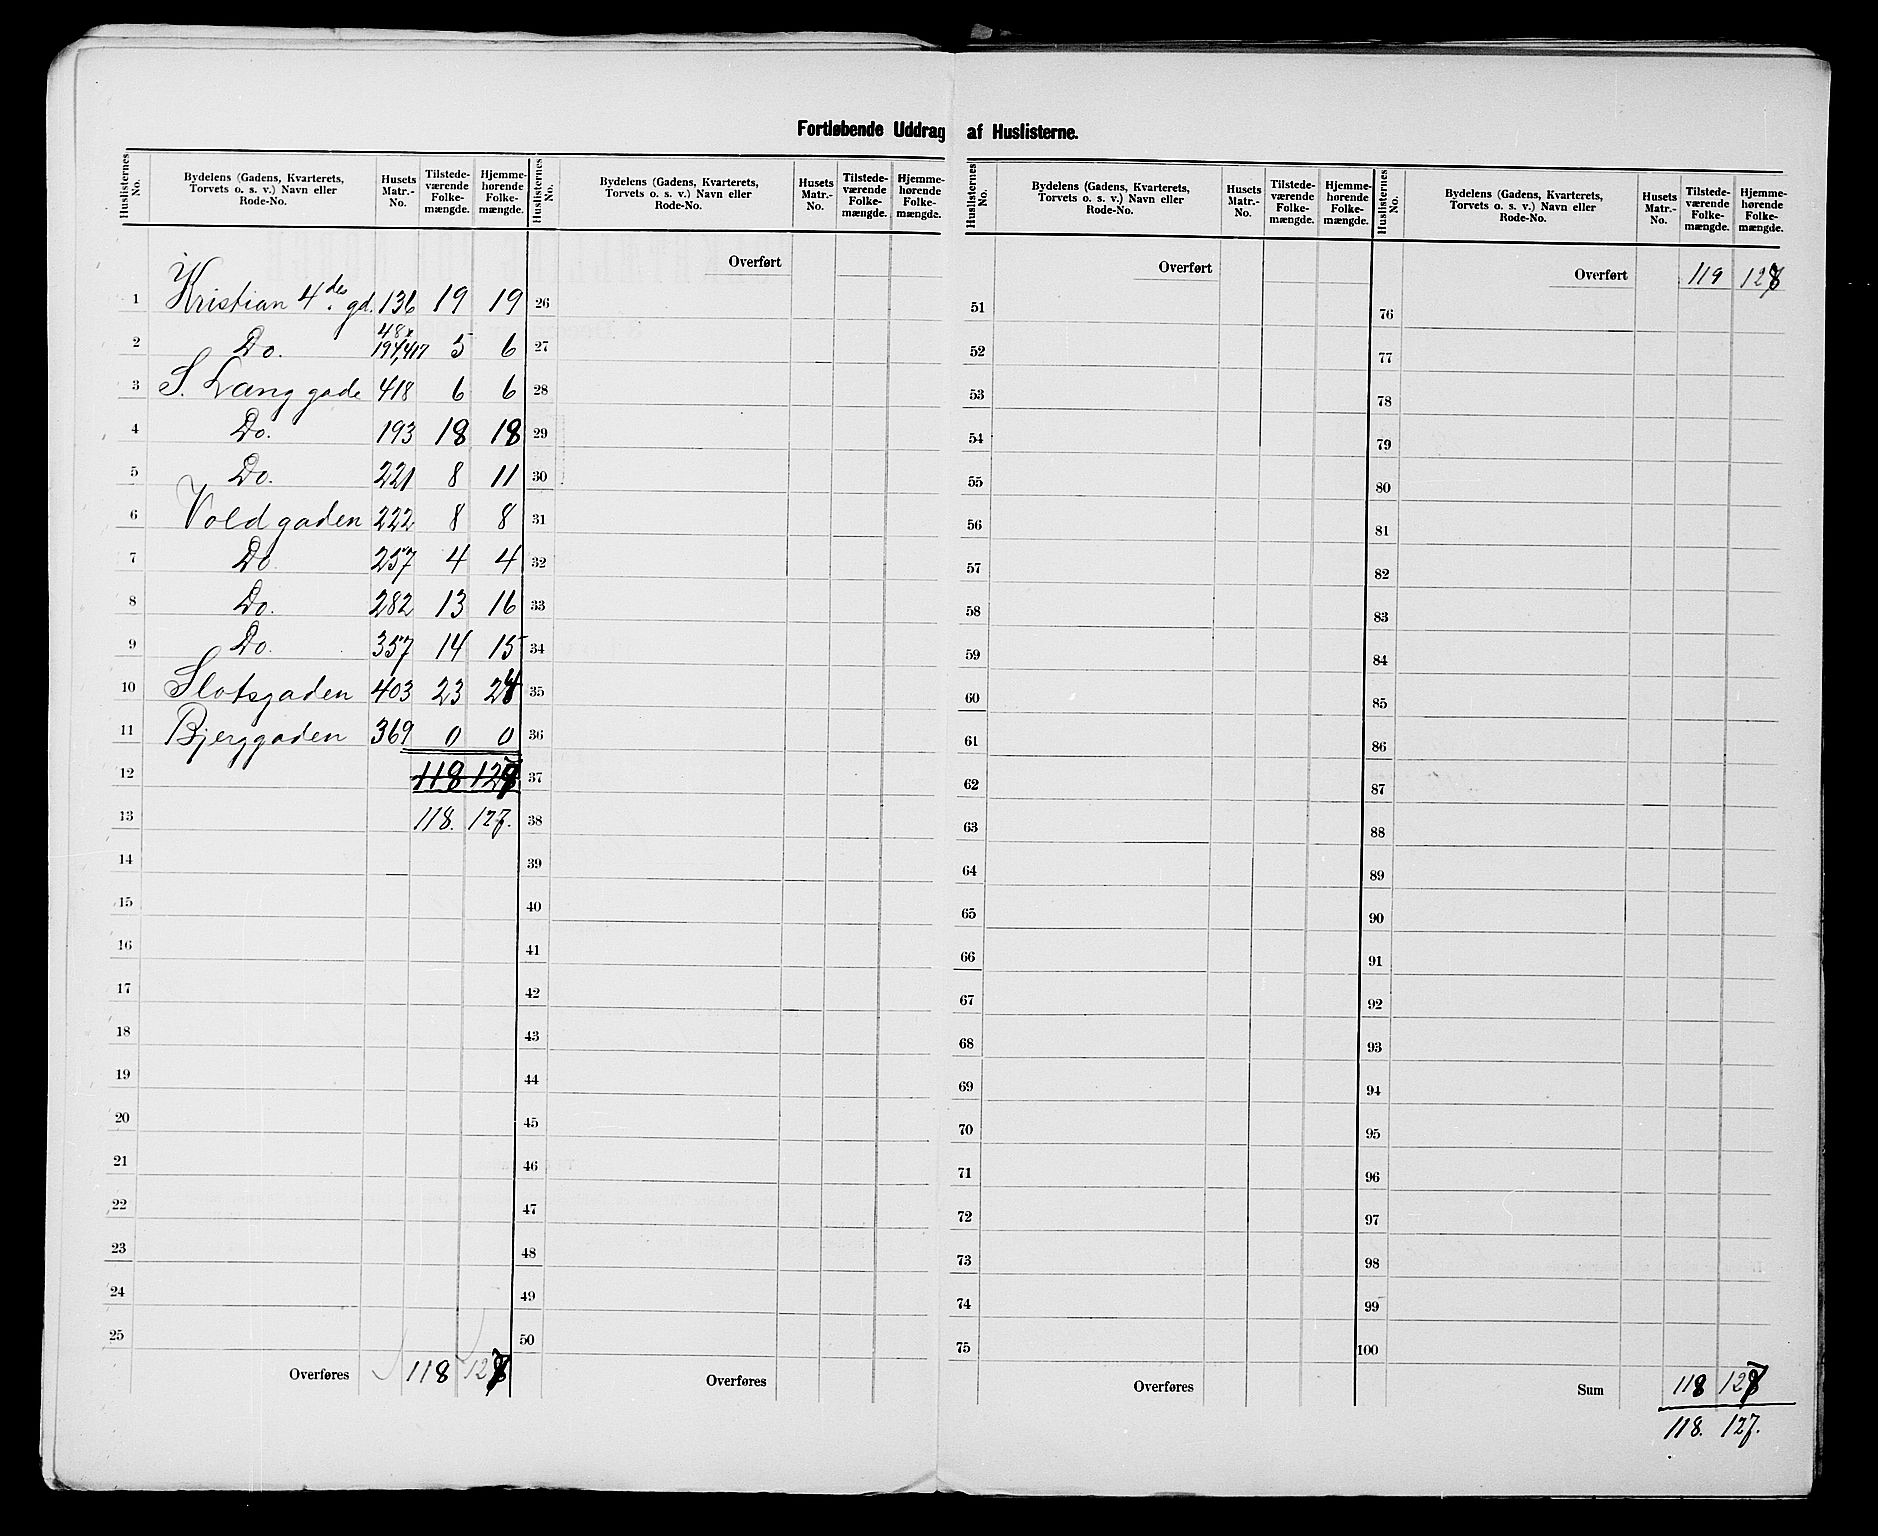 Fortløbende Uddrag af Huslisterne.
Huslisternes No. | Bydelens (Gadens, Kvarterets, Torvets o. s. v.) Navn eller Rode-No. | Husets Matr.-No. | Tilstedeværende Folkemængde. | Hjemmehørende Folkemængde.
1 Kristian 4des gd. 136 19 19
2 Do. 194,417 5 6
3 S. Langgade 418 6 6
4 Do. 193 18 18
5 Do. 221 8 11
6 Voldgaden 222 8 8
7 Do 257 4 4
8 Do. 282 13 16
9 Do. 357 14 15
10 Slotsgaden 403 23 24
11 Bjerggaden 369 0 0
12 118 127
13 118. 127.
14
15
16
17
18
19
20
21
22
23
24
25
Overføres 118 127
Huslisternes No. | Bydelens (Gadens, Kvarterets, Torvets o. s. v.) Navn eller Rode-No. | Husets Matr.-No. | Tilstedeværende Folkemængde. | Hjemmehørende Folkemængde.
Overført
26
27
28
29
30
31
32
33
34
35
36
37
38
39
40
41
42
43
44
45
46
47
48
49
50
Overføres
Huslisternes No. | Bydelens (Gadens, Kvarterets, Torvets o. s. v.) Navn eller Rode-No. | Husets Matr.-No. | Tilstedeværende Folkemængde. | Hjemmehørende Folkemængde.
Overført
51
52
53
54
55
56
57
58
59
60
61
62
63
64
65
66
67
68
69
70
71
72
73
74
75
Overføres
Huslisternes No. | Bydelens (Gadens, Kvarterets, Torvets o. s. v.) Navn eller Rode-No. | Husets Matr.-No. | Tilstedeværende Folkemængde. | Hjemmehørende Folkemængde.
Overført 119 127
76
77
78
79
80
81
82
83
84
85
86
87
88
89
90
91
92
93
94
95
96
97
98
99
100
Sum 118 127
118. 127.